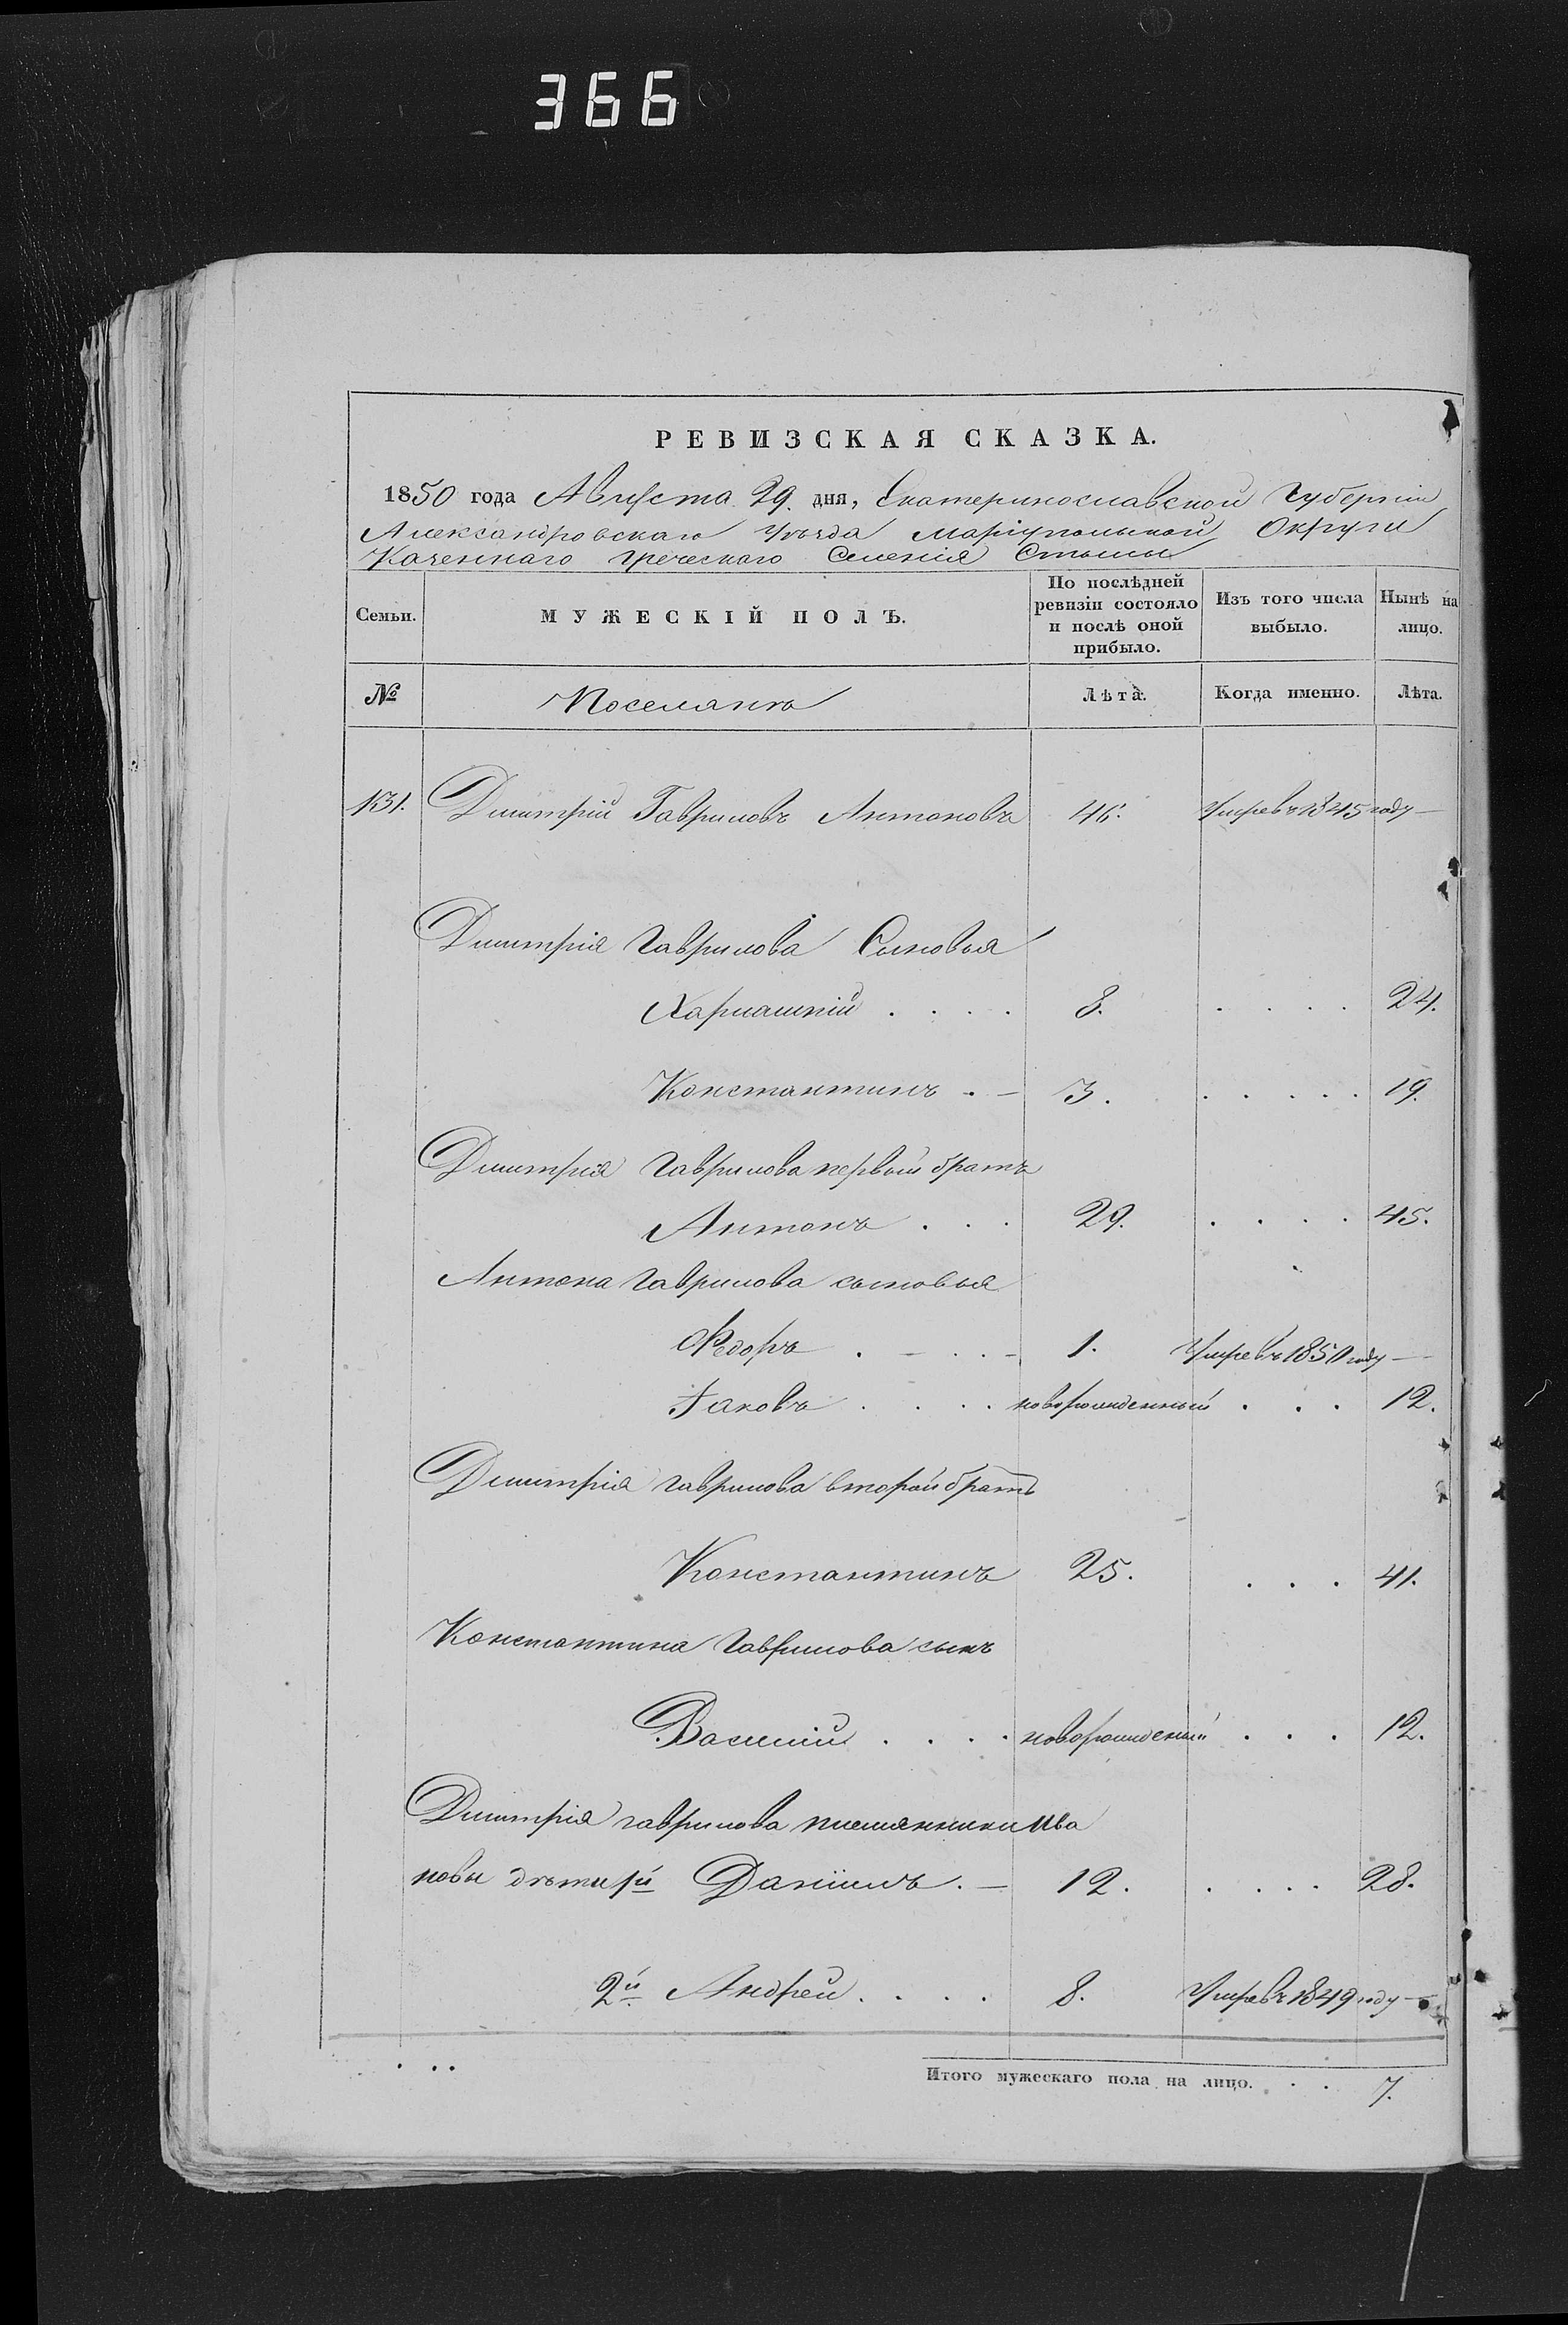 366
РЕВИЗСКАЯ СКАЗКА.
1850 года Августа 29. дня, Екатеринославской Губерніи
Александровскаго Уѣзда Маріупольской Округи
Казеннаго Греческаго Селенія Стылы
Семьи.
МУЖЕСКІЙ ПОЛЪ.
По послѣдней ревизіи состояло и послѣ оной прибыло.
Изъ того числа выбыло.
Нынѣ на лицо.
№ Поселянъ Лѣта. Когда именно. Лѣта.
131. Дмитрій Гавриловъ Антоновъ 46. Умре въ 1845 году —
Дмитрія Гаврилова Сыновья
Харлашкій . . . . 8. . . . . 24.
Константинъ . — 3. . . . . . 19.
Дмитрія Гаврилова первый братъ
Антонъ . . . 29. . . . . 45.
Антона Гаврилова сыновья
Федоръ . – . . – 1. Умре въ 1850 году —
Іаковъ . . . . новорожденный . . . 12.
Дмитрія Гаврилова второй братъ
Константинъ 25. . . . 41.
Константина Гаврилова сынъ
Василий . . . . новорожденый . . . 12.
Дмитрія гаврилова племянники Ива
новы дѣти 1й Даніилъ . — 12. . . . . 28.
2й Андрей . . . . 8. Умре въ 1849 году —
Итого мужескаго пола на лицо. . . 7.